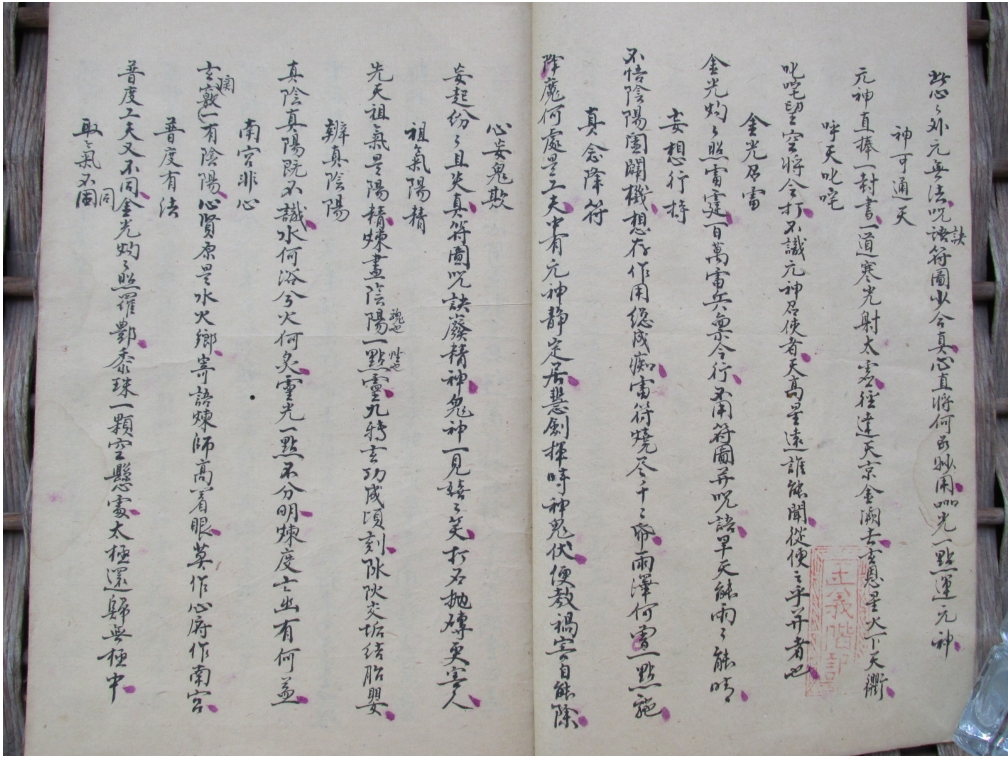 此心之外元無法咒訣語符圖必合真心直將何為妙用一點運元神
神可通天
元神直捧一封書一道寒光射太虛徑達天京金闕去玄恩星火下天衢
呼天叱咤
叱咤望空將令打不識元神召使者天高星遠誰能聞從便之乎并者也
金光召雷
金光灼灼照雷霆百萬雷兵稟令行不用符圖并咒語旱天能雨雨能晴
妄想行持
不悟陰陽闔闢機想存作用總成痴雷符燒盡千千紙雨澤何曾一點施
真念降符
降魔何處是工夫中有元神靜定居慧劍揮時神鬼伏便教禍害自能除
心妄鬼欺
妄起紛紛且失真符圖咒訣廢精神鬼神一見嘻嘻笑打石拋磚更害人
祖氣陽精
先天祖氣是陽精煉盡陰陽一點靈九轉玄功成頃刻陰陽交姤結胎嬰
辨真陰陽
真陰真陽既不識水何浴兮火何炙靈光一點不分明煉度亡幽有何益
南宮非心
玄關一竅有陰陽心腎原是水火鄉寄語煉師高著眼莫作心府作南宮
普度有法
普度工夫又不同金光灼灼照羅酆黍珠一顆空懸處太極還歸無極中
取氣不同
王義階記